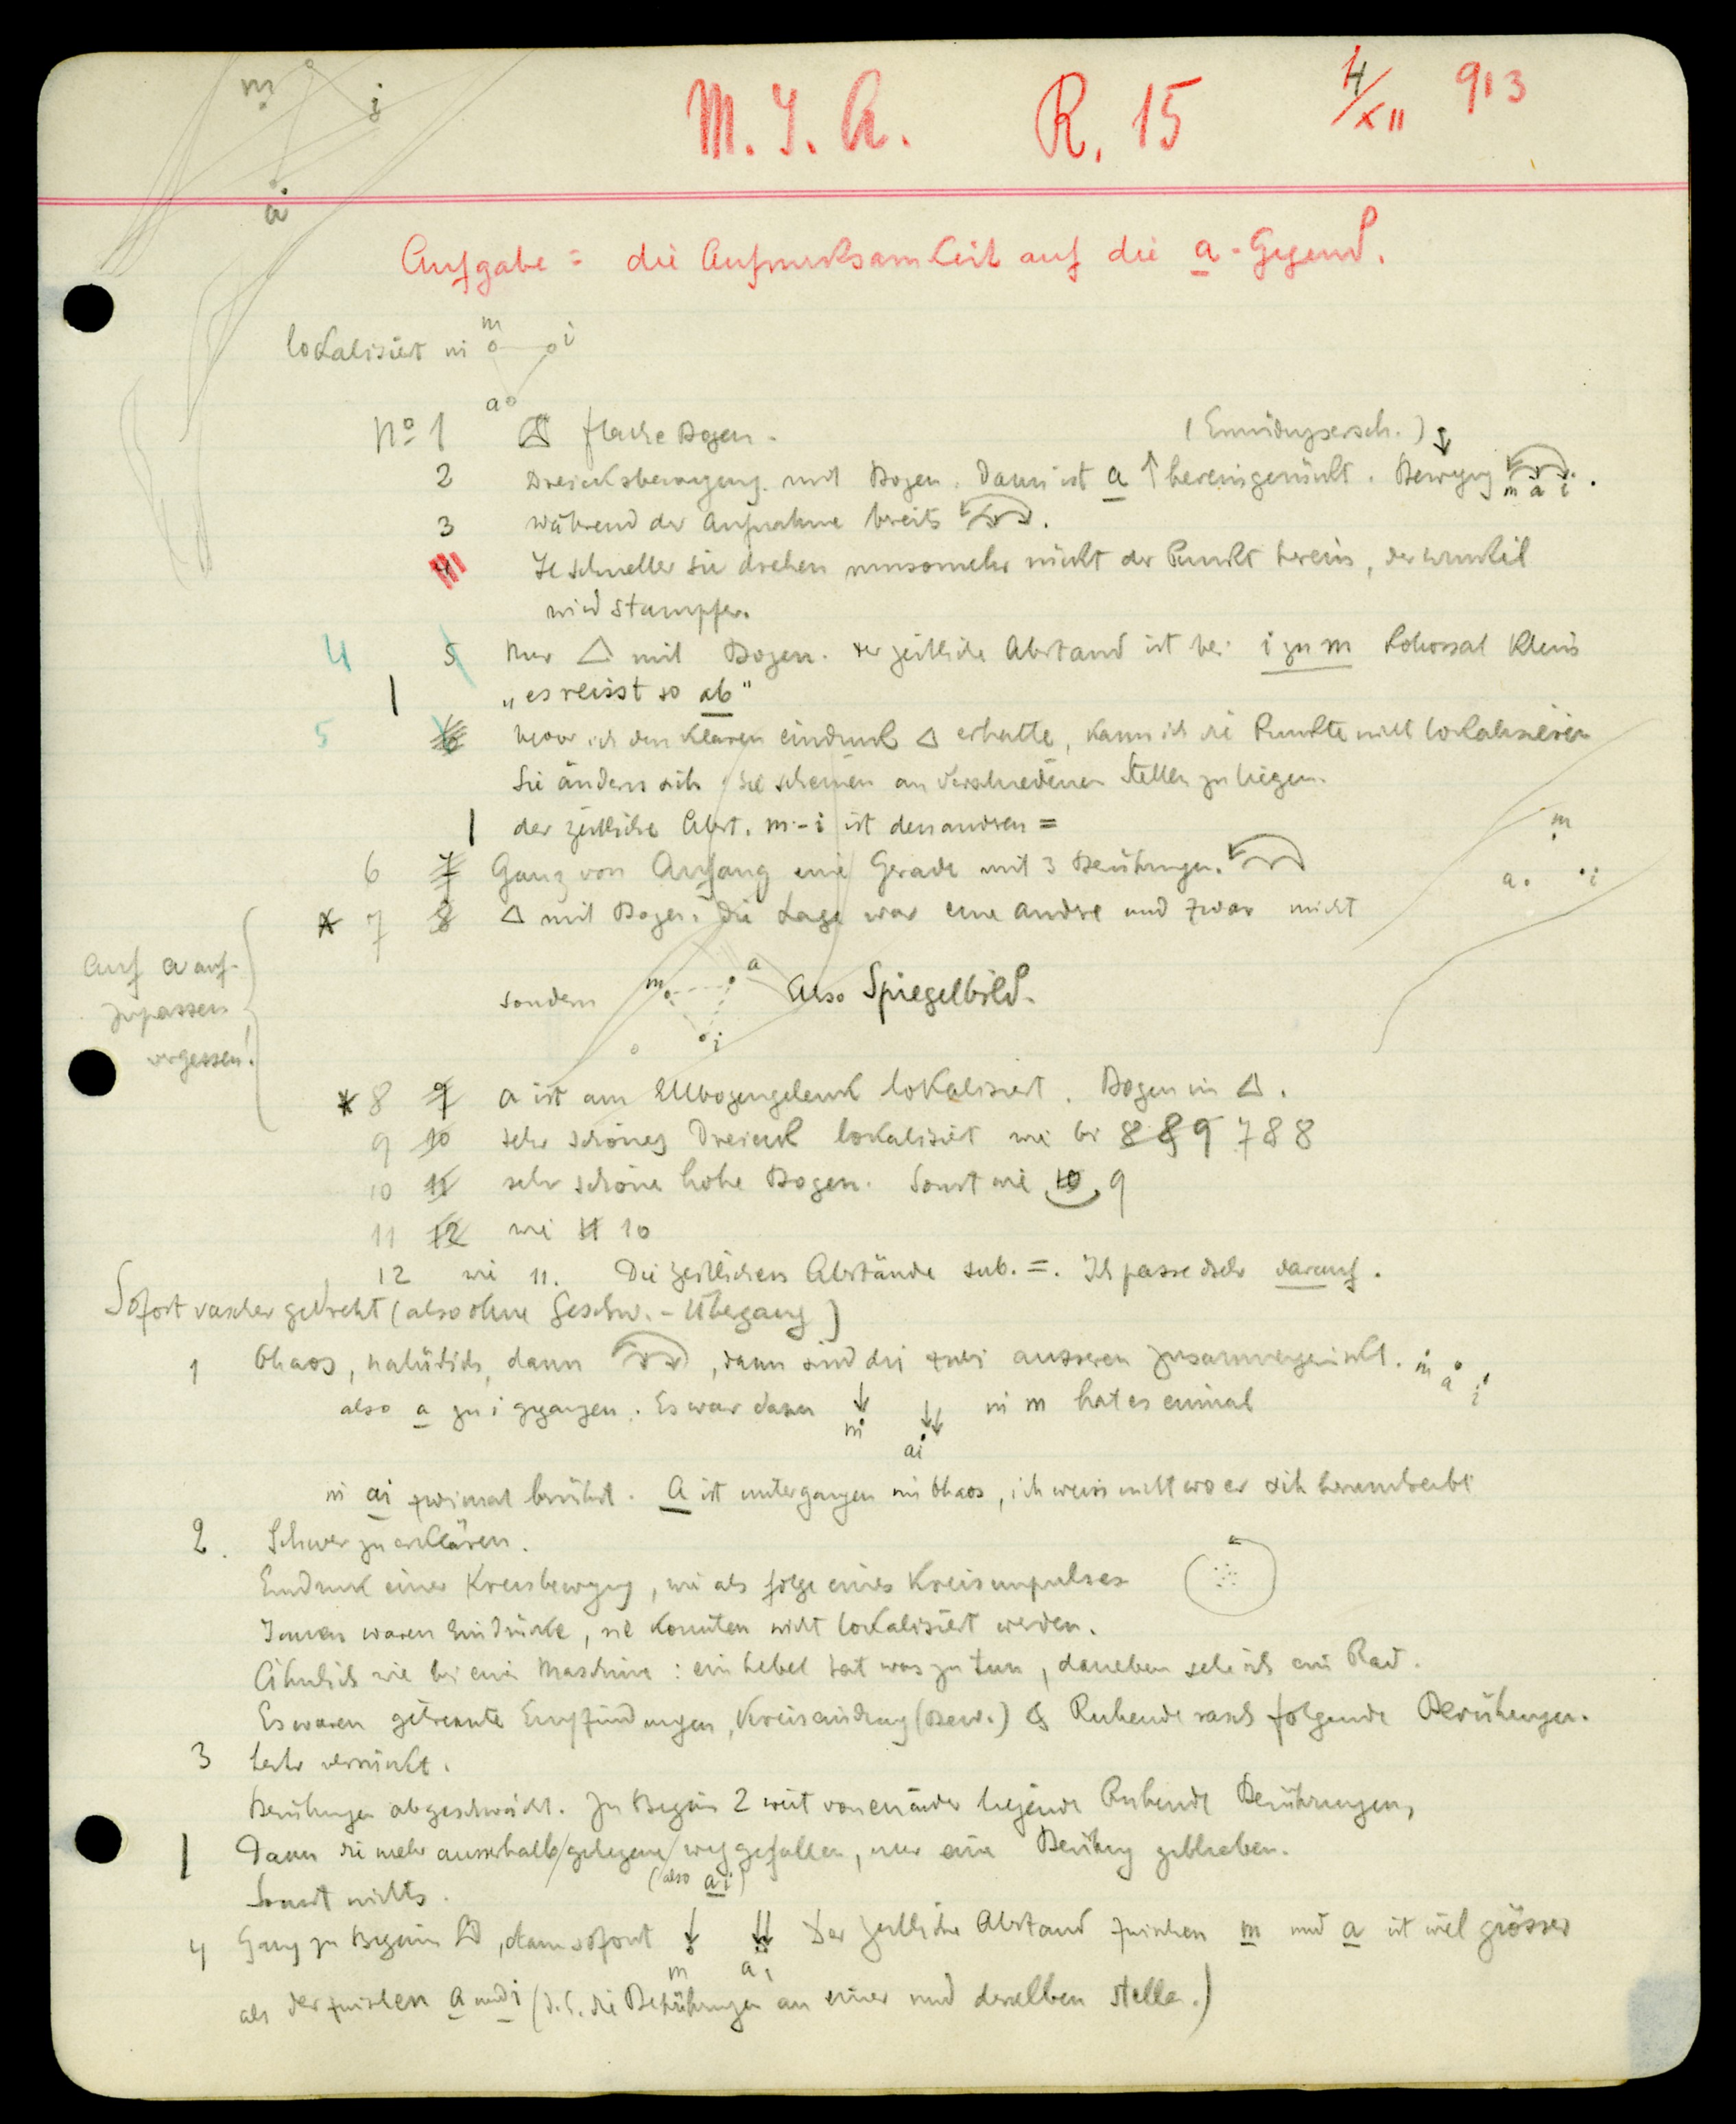 m i
a
M. J. A. R. 15 4/XII 913
Aufgabe = die Aufmerksamkeit auf die a-Gegend.
lokalisiert in m i
a
No 1 flache Bogen. (Ermüdungsersch.)
2 Dreiecksbewegung mit Bogen. Dann ist a ↑ hereingerückt. Bewegg m a i.
3 während der Aufnahme bereits
4 Je schneller sie drehen umsomehr rückt der Punkt herein, der Winkel
wird stumpfer.
4 5 Nur △ mit Bogen. Der zeitliche Abstand ist bei i zu m kolossal klein
„es reisst so ab"
5 6 bevor ich den klaren Eindruck △ erhalte, kann ich die Punkte nicht lokalisieren
Sie ändern sich, sie scheinen an verschiedenen Stellen zu liegen.
der zeitliche Abst. m-i ist den andren =
m
a. i
6 7 Ganz von Anfang eine Gerade mit 3 Berührungen.
* 7 8 △ mit Bogen. Die Lage war eine andre und zwar nicht
auf a auf-
zupassen
vergessen!
sondern m a i Also Spiegelbild.
* 8 9 a ist am Ellbogengelenk lokalisiert. Bogen in △.
9 10 sehr schönes Dreieck lokalisiert wie bei 8 & 9 7 & 8
10 11 sehr schöne hohe Bogen. Sonst wie 10 9
11 12 wie 11 10
12 wie 11. Die zeitlichen Abstände sub. =. Ich passe sehr darauf.
Sofort rascher gedreht (also ohne Geschw.-Übergang)
1 Chaos, natürlich, dann , dann sind die zwei äusseren zusammengerückt. m a i
also a zu i gegangen. Es war dann ↓ m ↓↓ ai in m hat es einmal
in ai zweimal berührt. a ist untergangen im Chaos, ich weiss nicht wo er sich herumtreibt
2. Schwer zu erklären.
Eindruck einer Kreisbewegung, wie als Folge eines Kreisimpulses
Innen waren Eindrücke, sie konnten nicht lokalisiert werden.
Ähnlich wie bei einer Maschine: ein Hebel hat was zu tun, daneben sehe ich ein Rad.
Es waren getrennte Empfindungen, Kreiseindruck (Bew.) & Ruhende rasch folgende Berührungen.
3 Sehr verrückt.
Berührungen abgeschwächt. Zu Beginn 2 weit voneinander liegende Ruhende Berührungen,
Dann die mehr ausserhalb gelegene weggefallen, nur eine Berührg geblieben.
(also ai)
Sonst nichts.
4 Ganz zu Beginn , dann sofort ↓ m ↓↓ a i Der zeitliche Abstand zwischen m und a ist viel grösser
als der zwischen a und i (d.h. die Berührungen an einer und derselben Stelle.)